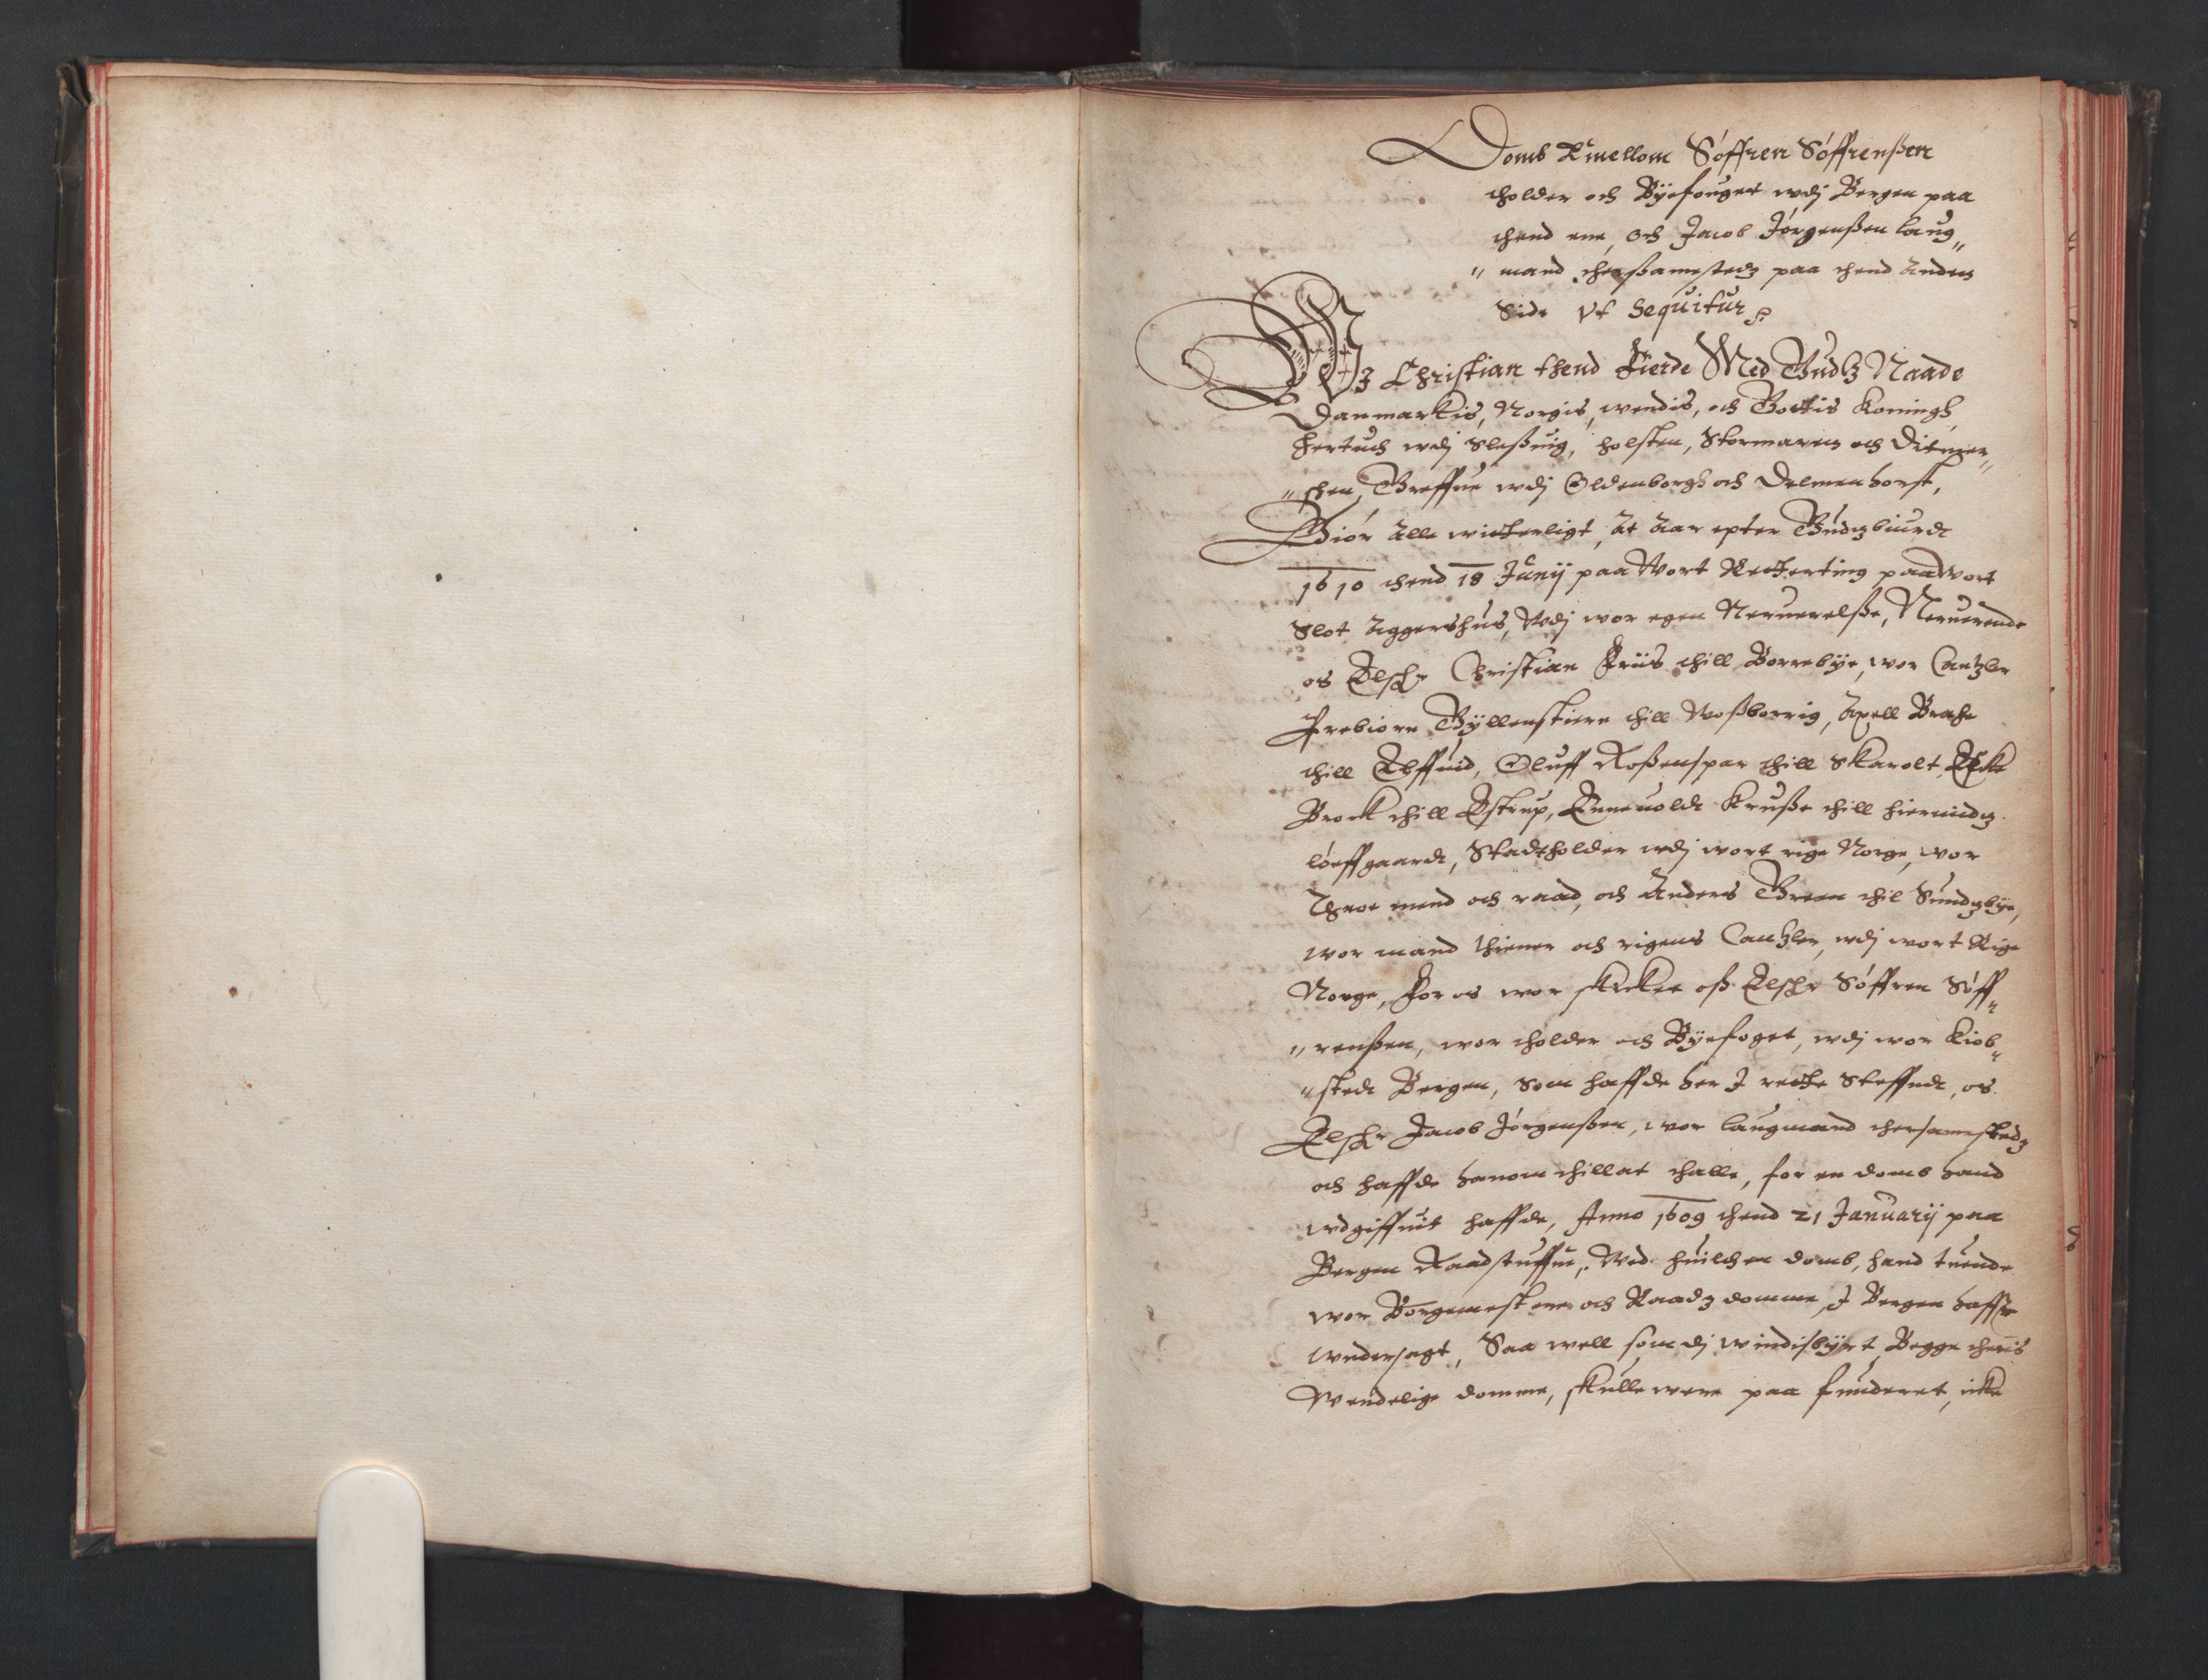 Domb Emellom Söffren Söffrenßen
tholder och Byefouget wdj Bergen paa
thend ene, och Jacob Jörgenßen laug„
„mand therßamestedz paa thend anden
Side Vt Sequitur
Wj Christian thend Fierde Med Gudtz Naade
Danmarkis, Norgis, wendis, och Gottis Koningh,
Hertuch wdj Sleßuig, holsten, Stormaren och Ditmer„
„schen, Greffue wdj Oldenborgh och Delmenhorst,
Giör alle witterligt, at Aar epter Gudtz biurdt
1610 thend 18 Junij paa Wort Retterting paa Wort
Slot Aggershus, Wdj wor egen Neruerelße, Neruerende
os Elschr Christian Friis thill Borrebye, wor Cantzler
Prebiörn Gyllenstiern thill Woßborrig, Axell Brahe
thill Elffuid, Oluff Roßenspar thill Skarolt, Eske
Brock thill Estrup, Enneuoldt Kruße thill Hiermidtz
löeffgaardt, Stadtholder wdj wort rige Norge, wor
Throe mend och raad, och Anders Green thil Sundtzbye,
wor mand thiener och rigens Cantzler, wdj wort Rige
Norge, For os wor skicket oß Elschr Söffren Söff„
„renßen, wor tholder och Byefoget, wdj wor Kiöb„
„stedt Bergen, Som haffde her J rette Steffnedt, os
Elschr Jacob Jörgenßen, wor laugmand thersamestedz
och haffde hanom thillat thalle, for en domb hand
wdgiffuit haffde, Anno 1609 thend 21 Januarij paa
Bergen Raadstuffue, Wed huilchen domb, hand tuende
wor Borgemestere och Raadz domme, J Bergen haffr
wndersagt, Saa well som dj windisbyrt, Begge theris
Wendelige domme, skulle were paa funderet, icke